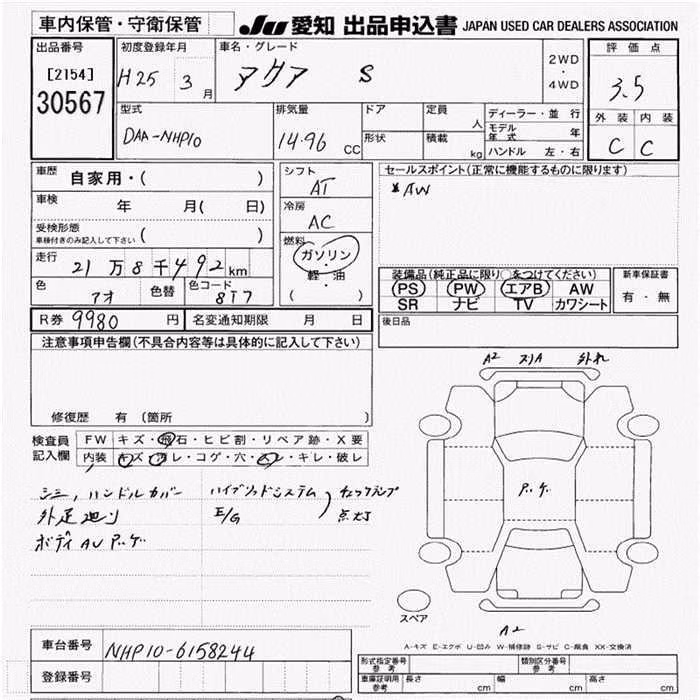 車内保管・守衛保管
JU 愛知 出品申込書 JAPAN USED CAR DEALERS ASSOCIATION
出品番号
[2154]
30567
初度登録年月
H25 3月
車名・グレード
アクア S
2WD
・
4WD
評価点
3.5
外装 内装
C C
型式
DAA-NHP10
排気量
1496 CC
ドア
形状
定員 人
積載 kg
ディーラー・並行
モデル年式 年
ハンドル 左・右
車歴 自家用・( )
車検 年 月( 日)
受検形態
車検付きのみ記入して下さい ( )
走行
21万8千492km
色
アオ
色替
色コード
8T7
シフト
AT
冷房
AC
燃料
ガソリン
・
軽・油
( )
セールスポイント(正常に機能するものに限ります)
AW
装備品(純正品に限り○をつけてください)
PS PW エアB AW
SR ナビ TV カワシート
新車保証書
有・無
R券 9980 円
名変通知期限 月 日
後日品
注意事項申告欄(不具合内容等は具体的に記入して下さい)
修復歴 有 (箇所 )
検査員記入欄
FW キズ・飛石・ヒビ割・リペア跡・X要
内装 キズ・汚レ・コゲ・穴・スレ・キレ・破レ
シミ、ハンドルカバー
外足廻り
ボディAU
ハイブリッドシステム
E/G
チェックランプ
点灯
A2 スリA 外れ
スペア
A2
A-キズ E-エクボ U-凹み W-補修跡 S-サビ C-腐食 XX-交換済
車台番号 NHP10-6158244
登録番号
形式指定番号 参考
類別区分番号 参考
車庫証明用 参考 長さ cm 幅 cm 高さ cm